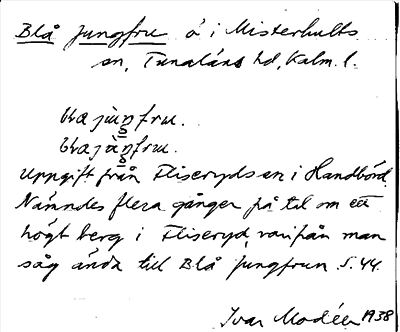 Blå Jungfru ö i Misterhults
sn, Tunaläns hd, Kalm. l.
blajuŋfru.
blajuŋfru.
Uppgift från Fliseryds sn i Handbörd.
Nämndes flera gånger på tal om ett
högt berg i Fliseryd, varifrån man
såg ända till Blå Jungfrun. S. 44.
Ivar Modéer 1938